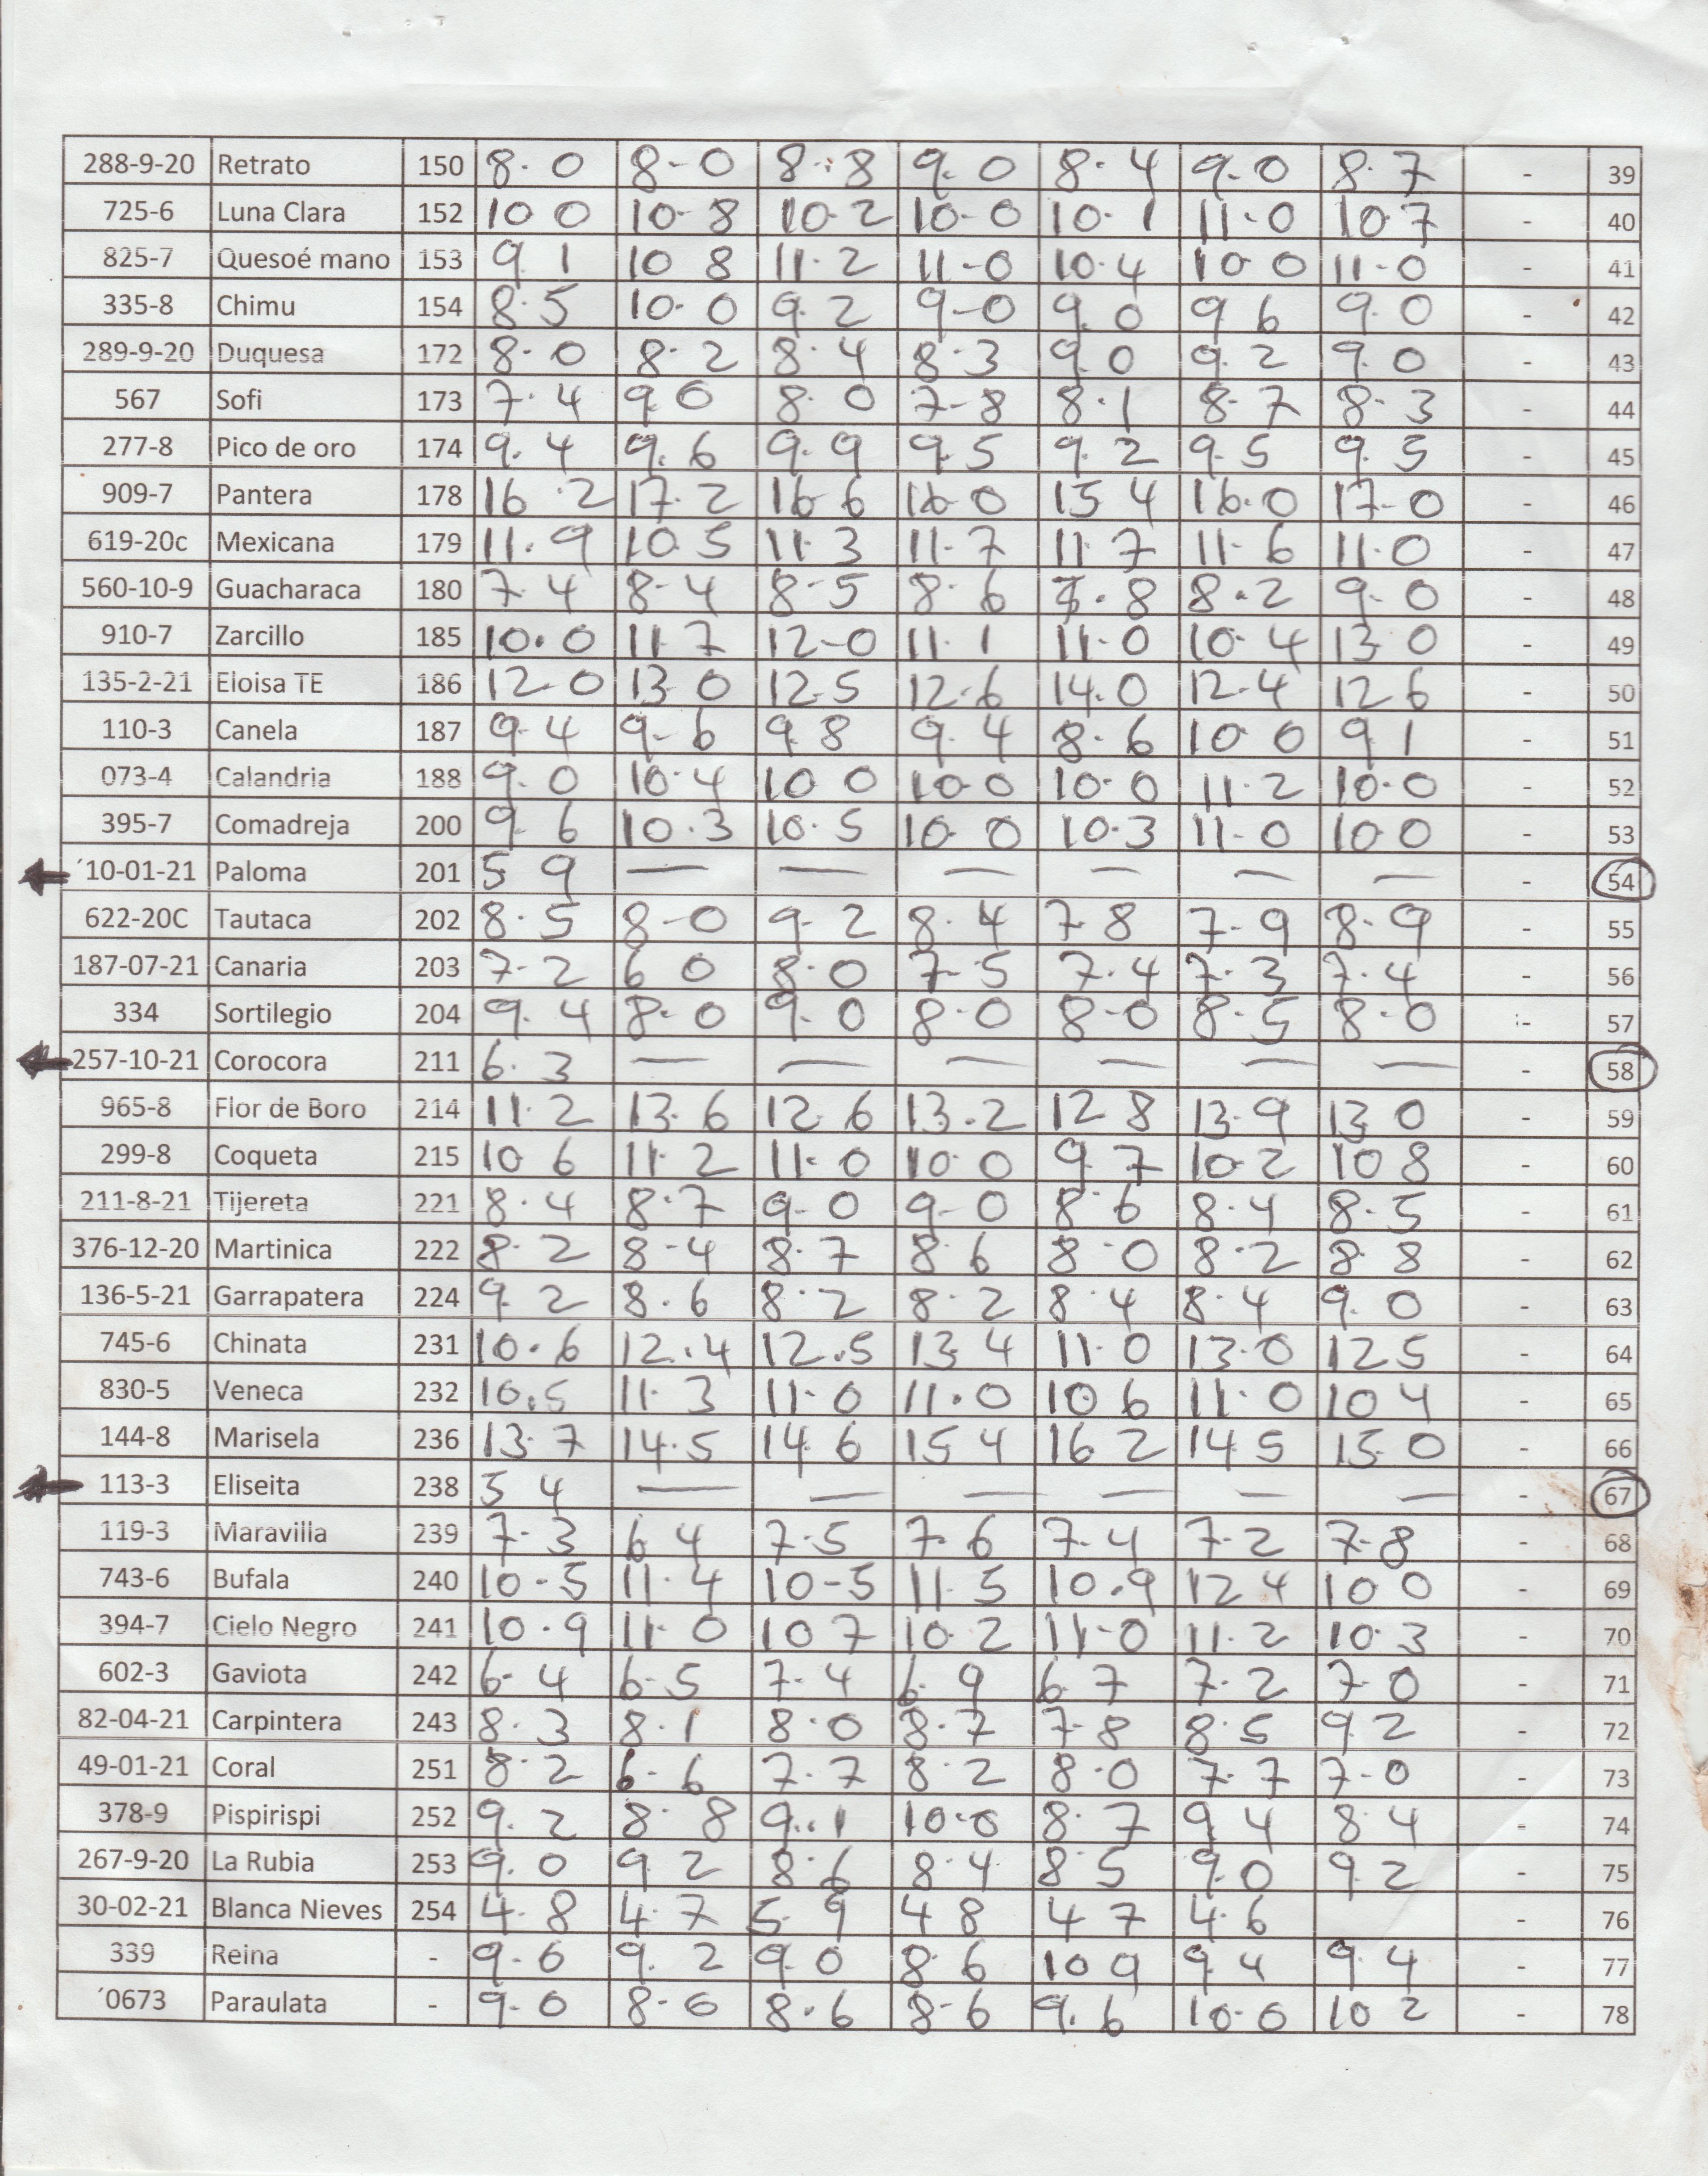 288-9-20 Retrato 150 8.0 8-0 8.8 9.0 8.4 9.0 8.7 - 39
725-6 Luna Clara 152 10 0 10-8 10-2 10-0 10-1 11-0 10 7 - 40
825-7 Quesoé mano 153 9 1 10 8 11.2 11-0 10.4 10 0 11-0 - 41
335-8 Chimu 154 8.5 10.0 9.2 9-0 9.0 9 6 9.0 - 42
289-9-20 Duquesa 172 8.0 8.2 8.4 8.3 9.0 9.2 9.0 - 43
567 Sofi 173 7.4 9.0 8.0 7-8 8.1 8-7 8.3 - 44
277-8 Pico de oro 174 9.4 9.6 9.9 9.5 9.2 9.5 9.5 - 45
909-7 Pantera 178 16.2 17.2 16 6 16-0 15 4 16.0 17-0 - 46
619-20c Mexicana 179 11.9 10.5 11.3 11.7 11.7 11-6 11.0 - 47
560-10-9 Guacharaca 180 7.4 8-4 8-5 8.6 7.8 8.2 9-0 - 48
910-7 Zarcillo 185 10.0 11.7 12-0 11.1 11.0 10.4 13 0 - 49
135-2-21 Eloisa TE 186 12.0 13 0 12.5 12.6 14.0 12.4 12 6 - 50
110-3 Canela 187 9.4 9-6 9.8 9.4 8.6 10 0 9 1 - 51
073-4 Calandria 188 9.0 10.4 10 0 10 0 10.0 11.2 10.0 - 52
395-7 Comadreja 200 9 6 10.3 10.5 10 0 10.3 11-0 10 0 - 53
´10-01-21 Paloma 201 5 9 — — — — — — - 54
622-20C Tautaca 202 8.5 8-0 9-2 8.4 7-8 7-9 8-9 - 55
187-07-21 Canaria 203 7-2 6 0 8.0 7-5 7.4 7.3 7.4 - 56
334 Sortilegio 204 9.4 8.0 9.0 8.0 8-0 8.5 8.0 - 57
257-10-21 Corocora 211 6.3 — — — — — — - 58
965-8 Flor de Boro 214 11.2 13.6 12.6 13.2 12 8 13.9 13 0 - 59
299-8 Coqueta 215 10 6 11.2 11.0 10.0 9.7 10.2 10 8 - 60
211-8-21 Tijereta 221 8.4 8.7 9-0 9-0 8.6 8.4 8.5 - 61
376-12-20 Martinica 222 8.2 8-4 8.7 8.6 8.0 8.2 8.8 - 62
136-5-21 Garrapatera 224 9.2 8.6 8.2 8.2 8.4 8.4 9.0 - 63
745-6 Chinata 231 10.6 12.4 12.5 13 4 11.0 13.0 12 5 - 64
830-5 Veneca 232 10.5 11.3 11.0 11.0 10 6 11.0 10 4 - 65
144-8 Marisela 236 13.7 14.5 14 6 15 4 16 2 14 5 15 0 - 66
113-3 Eliseita 238 5 4 — — — — — — - 67
119-3 Maravilla 239 7.3 6 4 7.5 7.6 7-4 7.2 7-8 - 68
743-6 Bufala 240 10-5 11.4 10-5 11.5 10.9 12 4 10 0 - 69
394-7 Cielo Negro 241 10.9 11.0 10 7 10.2 11-0 11.2 10.3 - 70
602-3 Gaviota 242 6-4 6-5 7.4 6.9 6.7 7.2 7.0 - 71
82-04-21 Carpintera 243 8.3 8.1 8.0 8.7 7-8 8.5 9.2 - 72
49-01-21 Coral 251 8.2 6-6 7.7 8.2 8.0 7.7 7-0 - 73
378-9 Pispirispi 252 9.2 8.8 9..1 10.0 8.7 9 4 8 4 - 74
267-9-20 La Rubia 253 9.0 9 2 8.6 8.4 8.5 9.0 9.2 - 75
30-02-21 Blanca Nieves 254 4.8 4.7 5.9 4 8 4 7 4.6 - 76
339 Reina - 9.0 9.2 9.0 8.6 10 9 9.4 9 4 - 77
´0673 Paraulata - 9.0 8-0 8.6 8-6 9.6 10.0 10 2 - 78